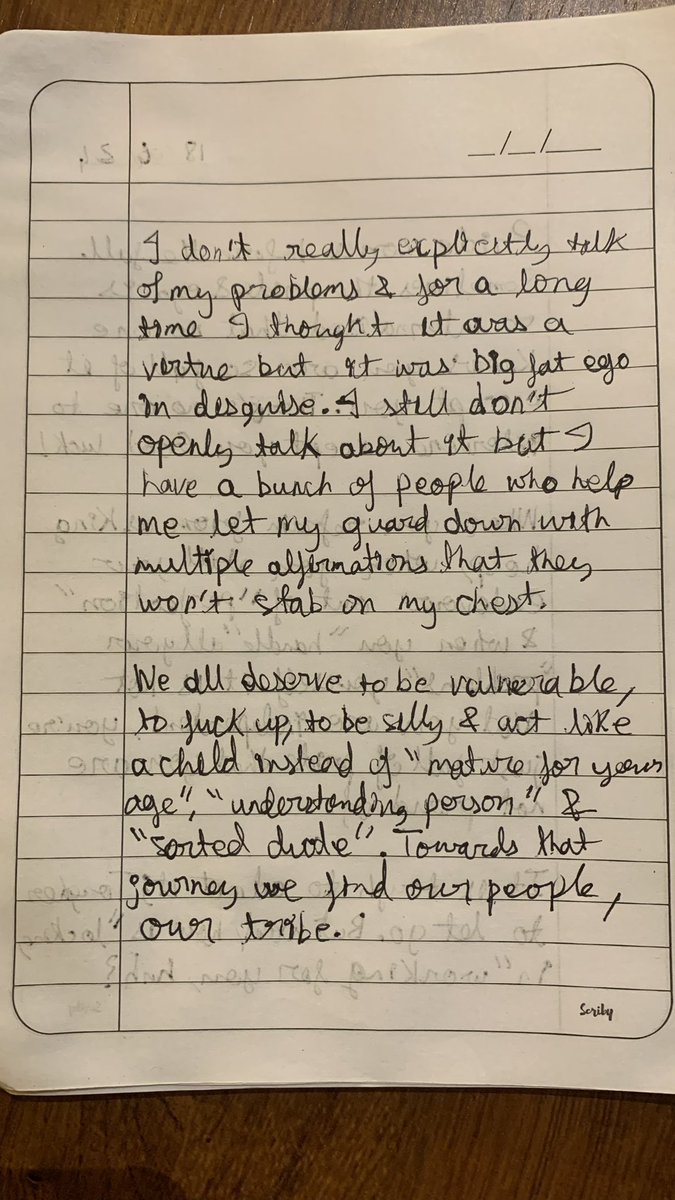 _/_/__
I don't really explicitly talk
of my problems & for a long
time I thought it was a
virtue but it was big fat ego
in disguise. I still don't
openly talk about it but I
have a bunch of people who help
me let my guard down with
multiple affirmations that they
won't stab on my chest.
We all deserve to be vulnerable,
to fuck up, to be silly & act like
a child instead of "mature for your
age", "understanding person" &
"sorted dude". Towards that
journey we find our people,
our tribe.
Scriby